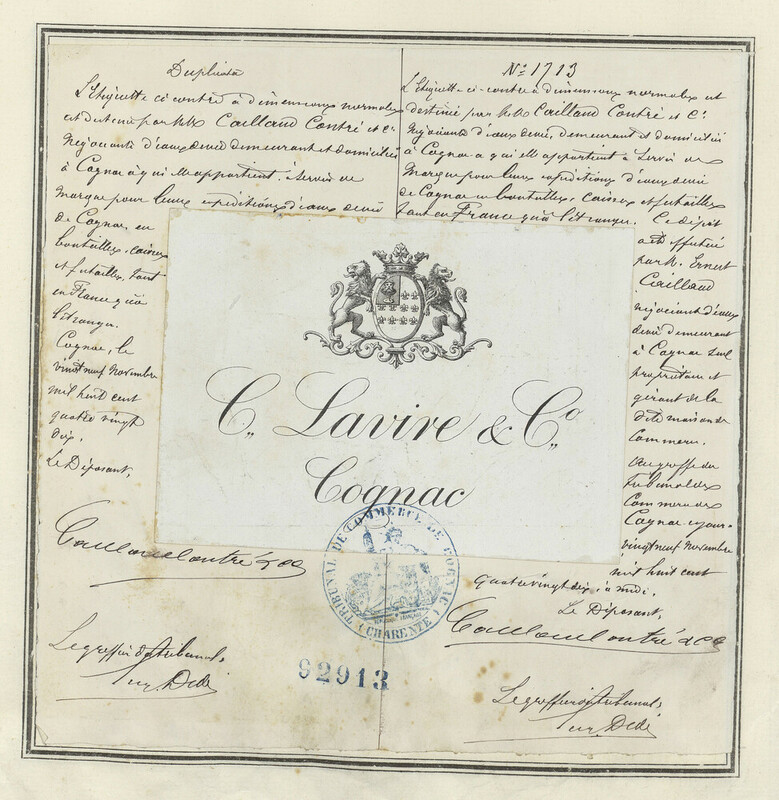 Duplicata
L'Etiquette ci contre à dimensions normales
est destinée par MM Caillaud Contré et Cie
Négociants d'eaux devie demeurant et domiciliés
à Cognac à qui elle appartient, à servir de
Marque pour leurs expéditions d'eaux devie
de Cognac, en
bouteilles, caisses
et futailles, tant
en France qu'à
l'étranger.
Cognac, le
vingt neuf Novembre
mil huit cent
quatre vingt
dix.
Le Déposant,
Caillaud Contré & Cie
Le greffier du tribunal,
92913
No 1713
L'Etiquette ci-contre à dimensions normales est
destinée par MM Caillaud Contré et Cie
Négociants d'eaux devie, demeurant et domiciliés
à Cognac à qui elle appartient à servir de
Marque pour leurs expéditions d'eaux devie
de Cognac en bouteilles, caisses et futailles
tant en France qu'à l'étranger. Ce dépôt
a été effectué
par M. Ernest
Caillaud
négociant d'eaux
devie demeurant
à Cognac seul
propriétaire et
gérant de la
dite maison de
Commerce,
au greffe du
Tribunal de
Commerce de
Cognac, ce jour-
vingt neuf Novembre
mil huit cent
quatre vingt dix, à midi.
Le Déposant,
Caillaud Contré & Cie
Le greffier du tribunal,
C. Lavire & Co.
Cognac
TRIBUNAL DE COMMERCE DE COGNAC
(CHARENTE)